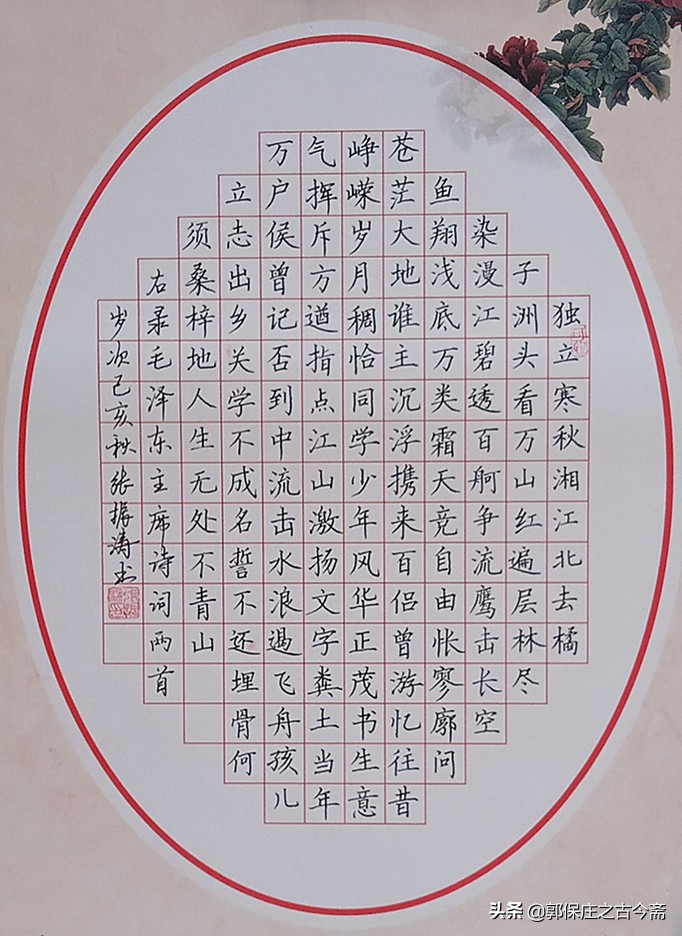 独立寒秋湘江北去橘
子洲头看万山红遍层林尽
染漫江碧透百舸争流鹰击长空
鱼翔浅底万类霜天竞自由怅寥廓问
苍茫大地谁主沉浮携来百侣曾游忆往昔
峥嵘岁月稠恰同学少年风华正茂书生意
气挥斥方遒指点江山激扬文字粪土当年
万户侯曾记否到中流击水浪遏飞舟孩儿
立志出乡关学不成名誓不还埋骨何
须桑梓地人生无处不青山
右录毛泽东主席诗词两首
岁次己亥秋张振涛书
头条 @郭保庄之古今斋